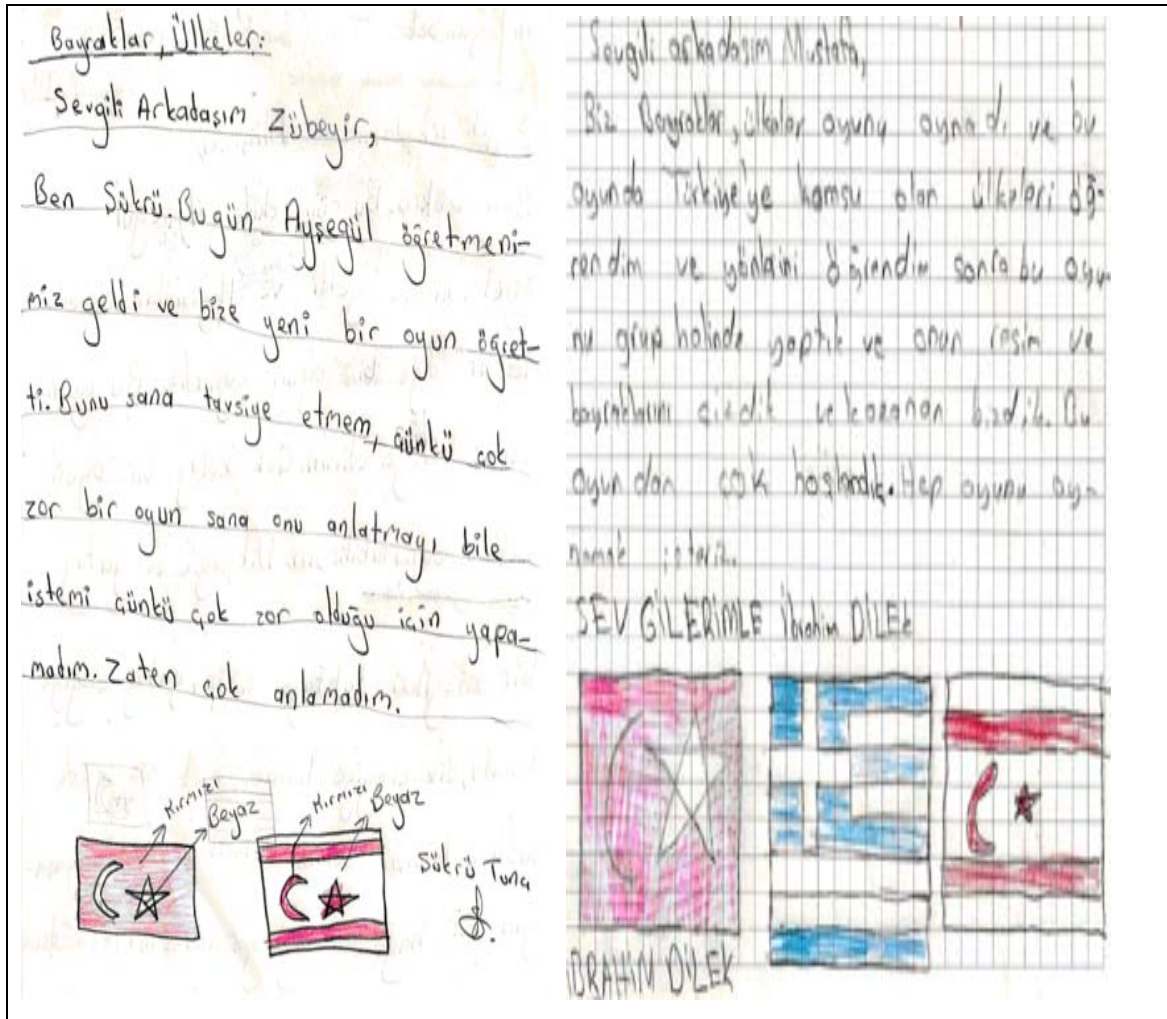 Bayraklar, Ülkeler:
Sevgili Arkadaşım Zübeyir,
Ben Şükrü. Bugün Ayşegül öğretmeni-
miz geldi ve bize yeni bir oyun öğret-
ti. Bunu sana tavsiye etmem, çünkü çok
zor bir oyun sana onu anlatmayı bile
istemi çünkü çok zor olduğu için yapa-
madım. Zaten çok anlamadım.
Kırmızı
Beyaz
Kırmızı
Beyaz
Şükrü Tuna
Sevgili arkadaşım Mustafa,
Biz Bayraklar, ülkeler oyunu oynadı ve bu
oyunda Türkiye'ye komşu olan ülkeleri öğ-
rendim ve yönlerini öğrendim sonra bu oyu-
nu grup halinde yaptık ve onun resim ve
bayraklarını çizdik ve kazanan bizdik. Bu
oyundan çok hoşlandık. Hep oyunu oy-
namak isteriz.
SEVGİLERİMLE İbrahim DİLEK
İBRAHİM DİLEK